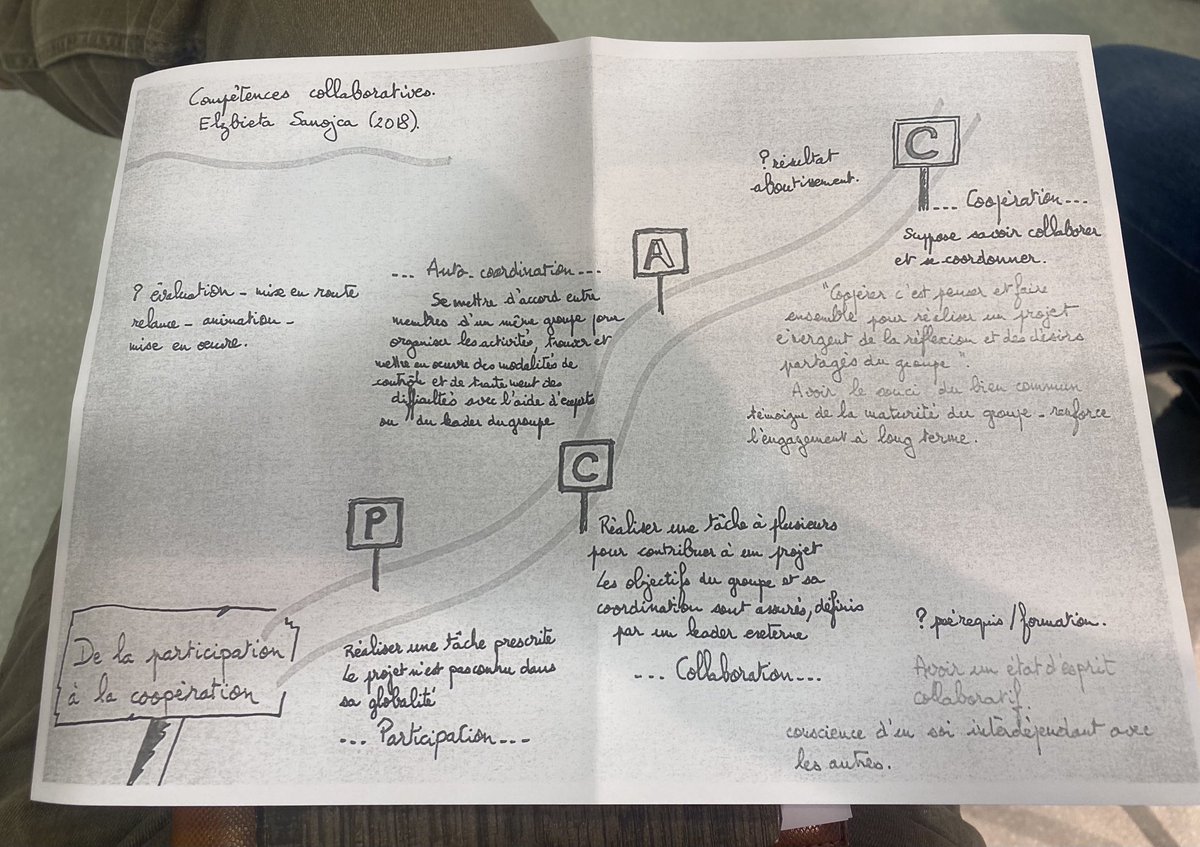 Compétences collaboratives.
Elzbieta Sanojca (2018).
? résultat
aboutissement.
C
--- Coopération---
Suppose savoir collaborer
et se coordonner.
"Coopérer c'est penser et faire
ensemble pour réaliser un projet
émergent de la réflexion et des désirs
partagés du groupe".
Avoir le souci du bien commun
témoigne de la maturité du groupe - renforce
l'engagement à long terme.
A
--- Auto-coordination---
Se mettre d'accord entre
membres d'un même groupe pour
organiser les activités, trouver et
mettre en oeuvre des modalités de
contrôle et de traitement des
difficultés avec l'aide d'experts
ou du leader du groupe
? évaluation - mise en route
relance - animation -
mise en oeuvre.
C
Réaliser une tâche à plusieurs
pour contribuer à un projet
Les objectifs du groupe et sa
coordination sont assurés, définis
par un leader externe
--- Collaboration---
P
Réaliser une tâche prescrite
Le projet n'est pas connu dans
sa globalité
--- Participation---
De la participation
à la coopération
? prérequis / formation.
Avoir un état d'esprit
collaboratif.
conscience d'un soi interdépendant avec
les autres.